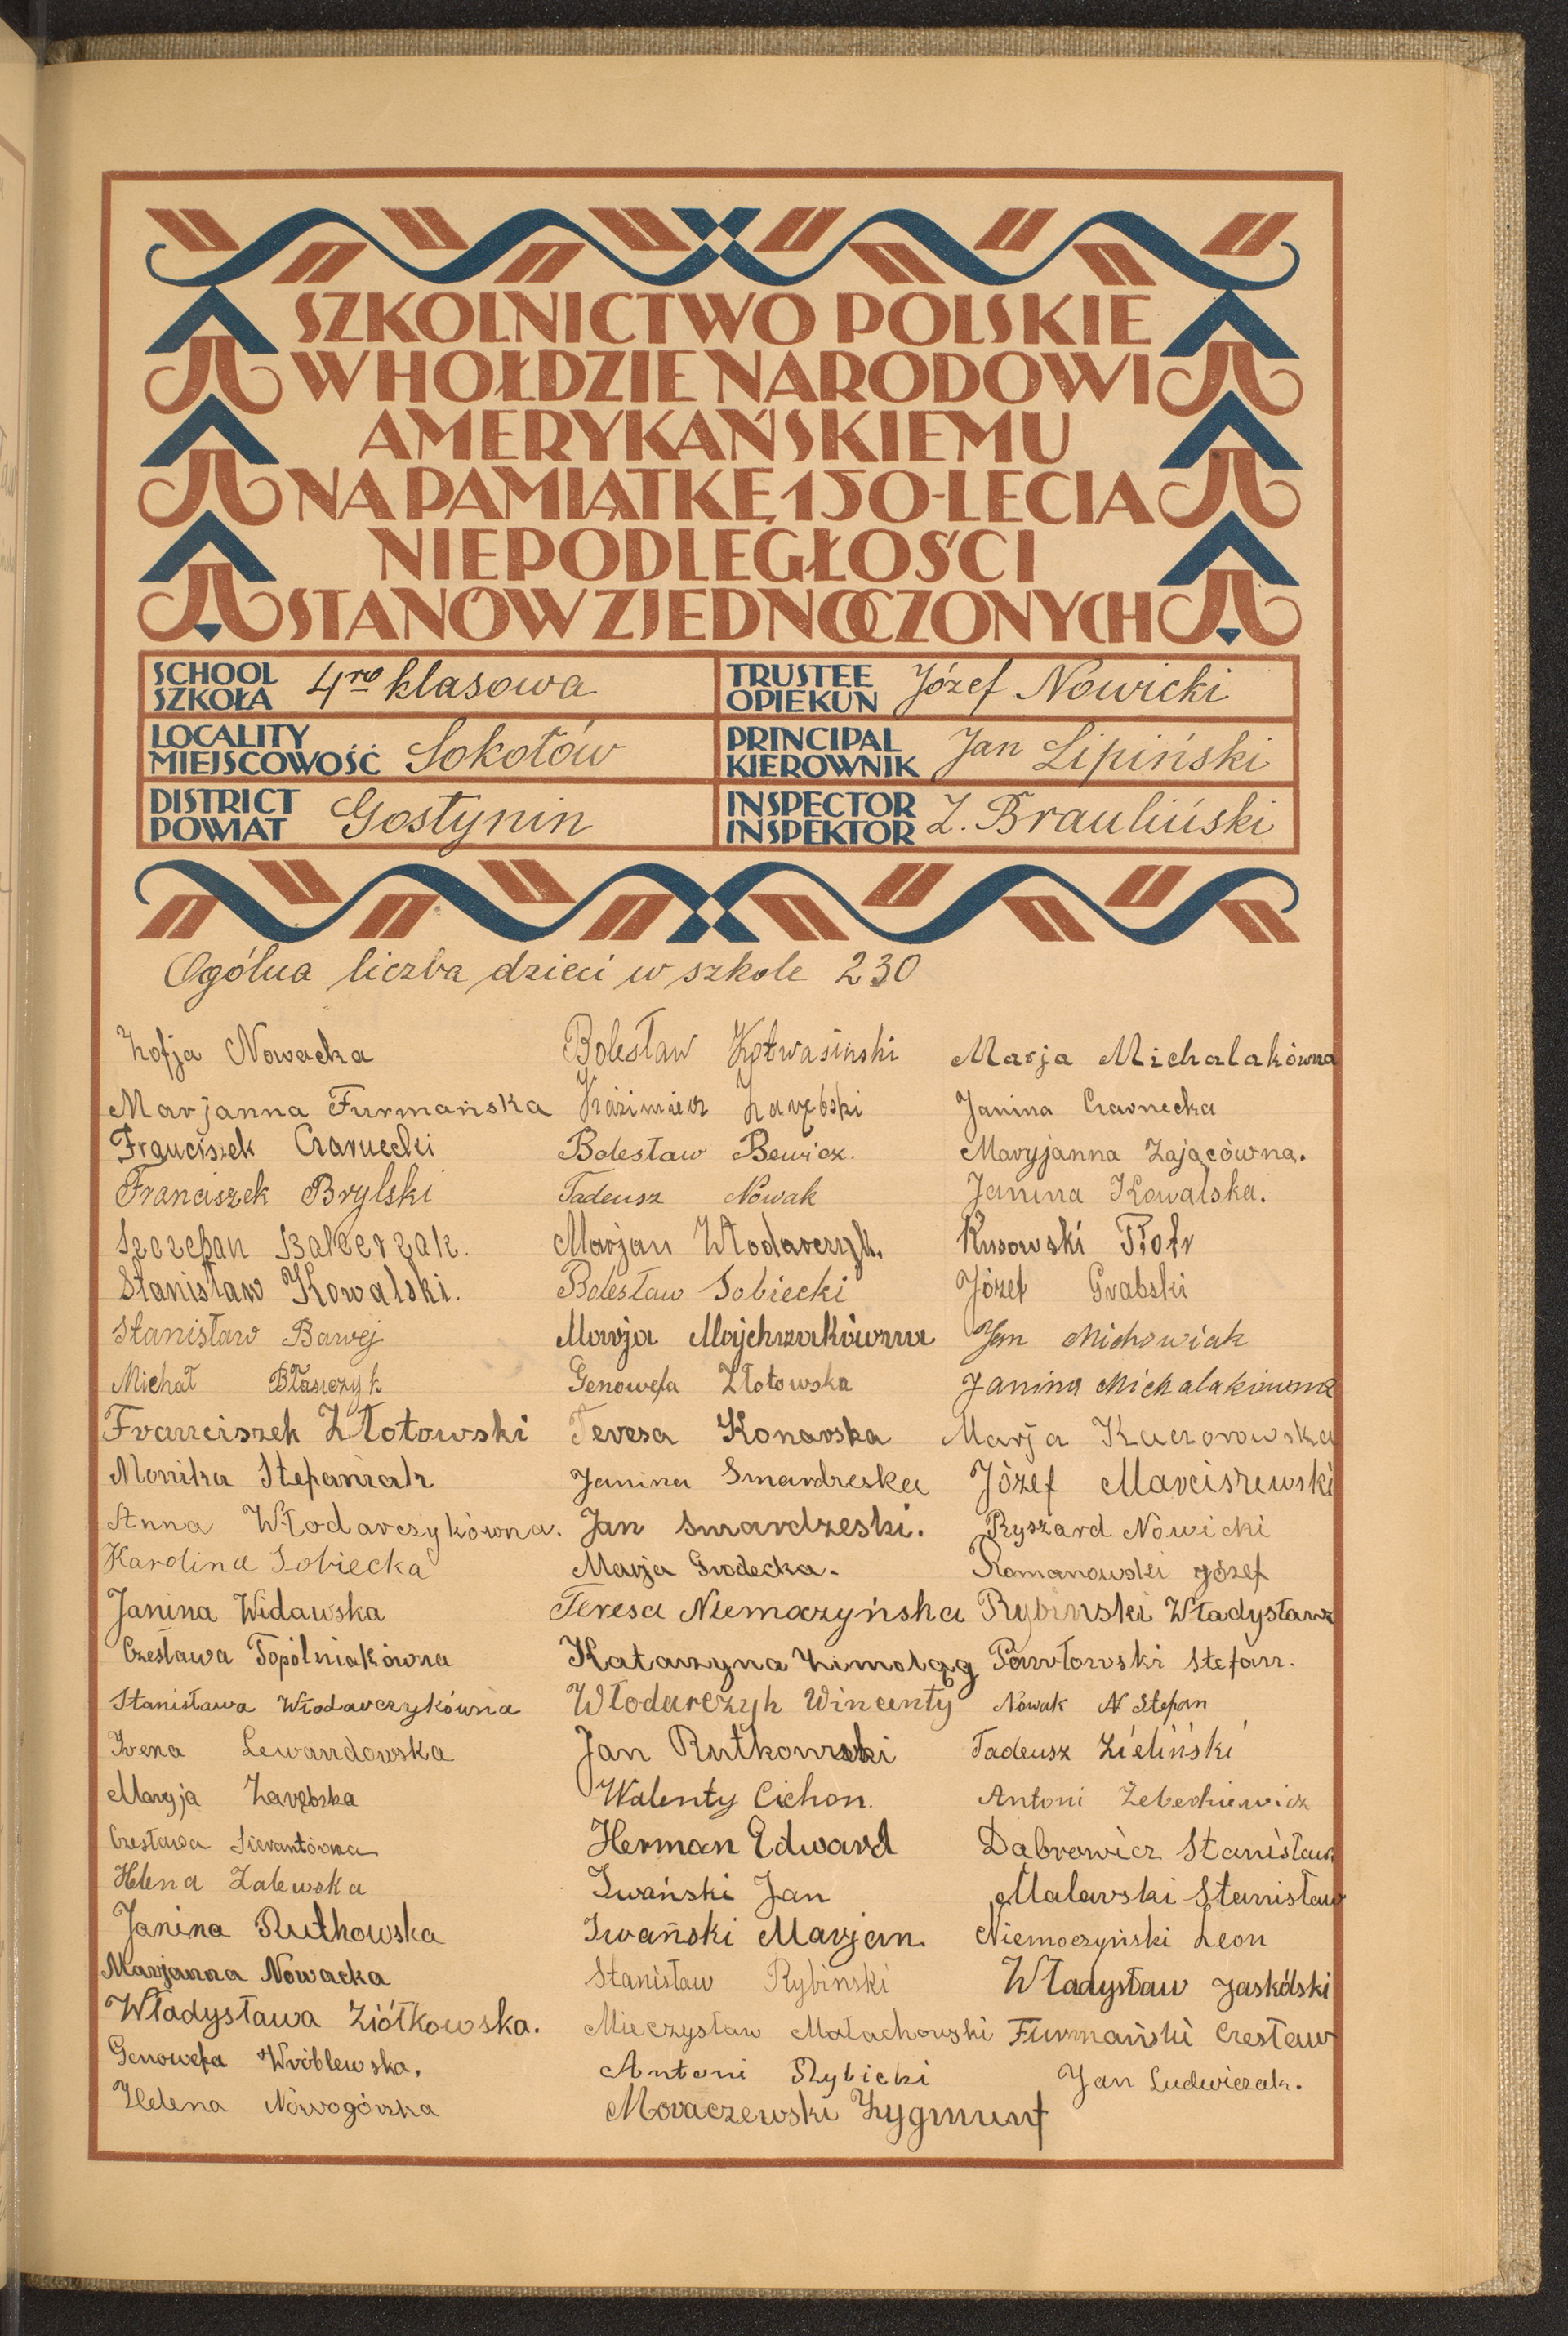 SZKOLNICTWO POLSKIE
W HOŁDZIE NARODOWI
AMERYKAŃSKIEMU
NA PAMIĄTKĘ 150-LECIA
NIEPODLEGŁOŚCI
STANÓW ZJEDNOCZONYCH
SCHOOL
SZKOŁA 4ro klasowa
TRUSTEE
OPIEKUN Józef Nowicki
LOCALITY
MIEJSCOWOŚĆ Sokołów
PRINCIPAL
KIEROWNIK Jan Lipiński
DISTRICT
POWIAT Gostynin
INSPECTOR
INSPEKTOR Z. Brauliński
Ogólna liczba dzieci w szkole 230
Zofja Nowacka
Marjanna Furmańska
Franciszek Czarnecki
Franciszek Brylski
Szczepan Balcerzak.
Stanisław Kowalski.
Stanisław Bawej
Michał Błaszczyk
Franciszek Złotowski
Monika Stefaniak
Anna Włodarczykówna.
Karolina Sobiecka
Janina Widawska
Czesława Topólniakówna
Stanisława Włodarczykówna
Irena Lewandowska
Maryja Zarębska
Czesława Sierantówna
Helena Zalewska
Janina Rutkowska
Marjanna Nowacka
Władysława Ziółkowska.
Genowefa Wróblewska.
Helena Nowogórska
Bolesław Kotwasiński
Kaźimierz Zarębski
Bolesław Bewicz.
Tadeusz Nowak
Marjan Włodarczyk.
Bolesław Sobiecki
Marja Majchrzakówna
Genowefa Złotowska
Teresa Konarska
Janina Smardzeska
Jan Smardzeski.
Marja Grodecka.
Teresa Niemoczyńska
Katarzyna Zimoląg
Włodarczyk Wincenty
Jan Rutkowski
Walenty Cichon.
Herman Edward
Iwański Jan
Iwański Marjan.
Stanisław Rybinski
Mieczysław Małachowski
Antoni Rybicki
Moraczewski Zygmunt
Marja Michalakówna
Janina Czarnecka
Maryjanna Zającówna.
Janina Kowalska.
Rusowski Piotr
Józef Grabski
Jan Michowiak
Janina Michalakówna
Marja Kaczorowska
Józef Marciszewski
Ryszard Nowicki
Romanowski Józef
Rybinski Władysław
Pawłowski Stefan.
Nowak N Stefan
Tadeusz Zieliński
Antoni Żeberkiewicz
Dąbrowicz Stanisław
Malarski Stanisław
Niemoczyński Leon
Władysław Jaskólski
Furmański Czesław
Jan Ludwiczak.